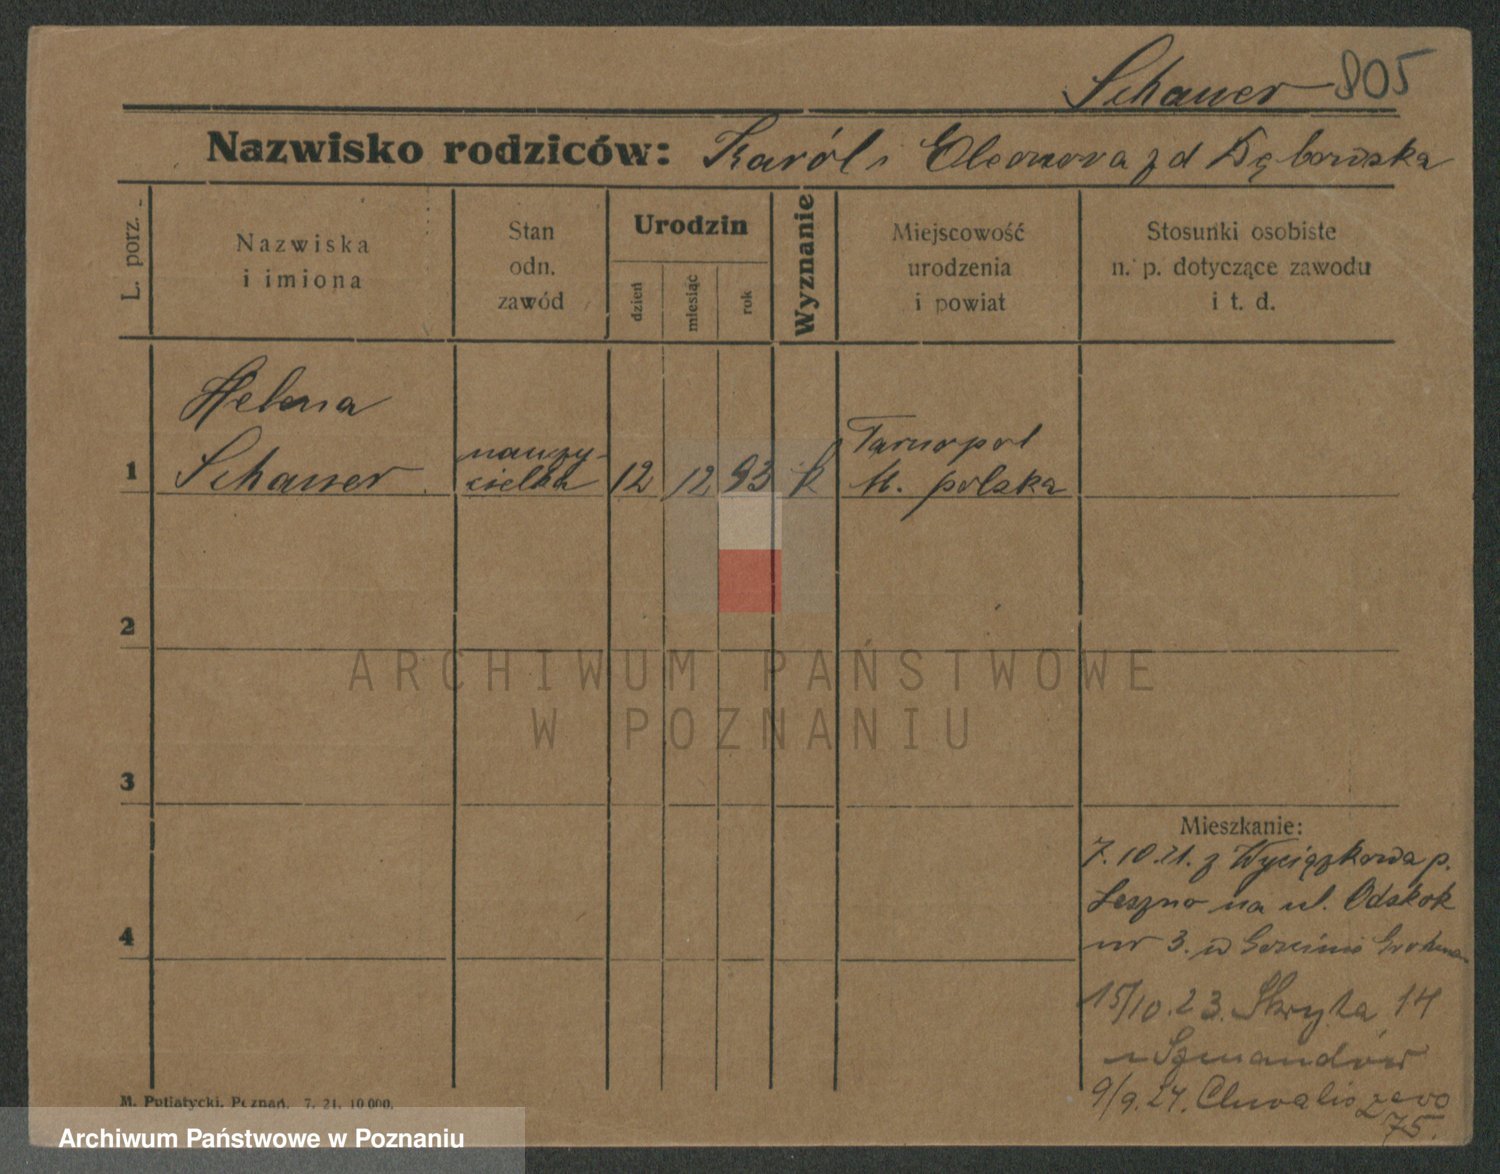 Schauer 805
Nazwisko rodziców: Karól i Eleonora z d Dąbowska
L. porz.
Nazwiska
i imiona
Stan
odn.
zawód
Urodzin
dzień
miesiąc
rok
Wyznanie
Miejscowość
urodzenia
i powiat
Stosunki osobiste
n. p. dotyczące zawodu
i t. d.
Helena
1 Schauer
nauczy-
cielka
12 12 93 k
Tarnopol
M. polska
2
3
4
Mieszkanie:
7.10.21. z Wyciążkowa p.
Leszno na ul. Odskok
nr 3. w
15/10.23. Skryta 14
u Szmandów
9/9.24. Chwaliszewo
75.
M. Putiatycki, Poznań. 7. 21. 10 000.
ARCHIWUM PAŃSTWOWE
W POZNANIU
Archiwum Państwowe w Poznaniu